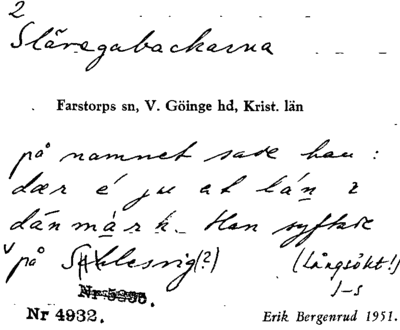 2
Släregabackarna
Farstorps sn, V. Göinge hd, Krist. län
på namnet sade han :
dær é ju at lán i
dánmárk. Han syftade
på Schlesvig(?) (Långsökt!)
J-s
Nr 5256.
Nr 4932. Erik Bergenrud 1951.